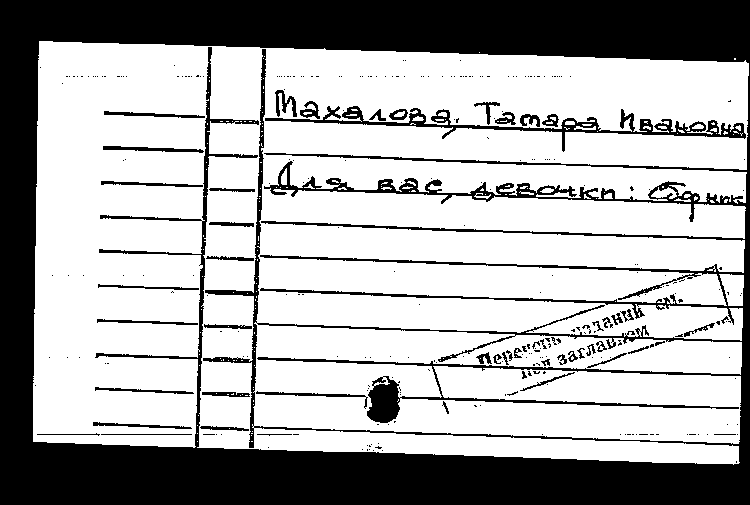 Махалова, Тамара Ивановна
Для вас, девочки: Сборник
Перечень изданий см.
под заглавием